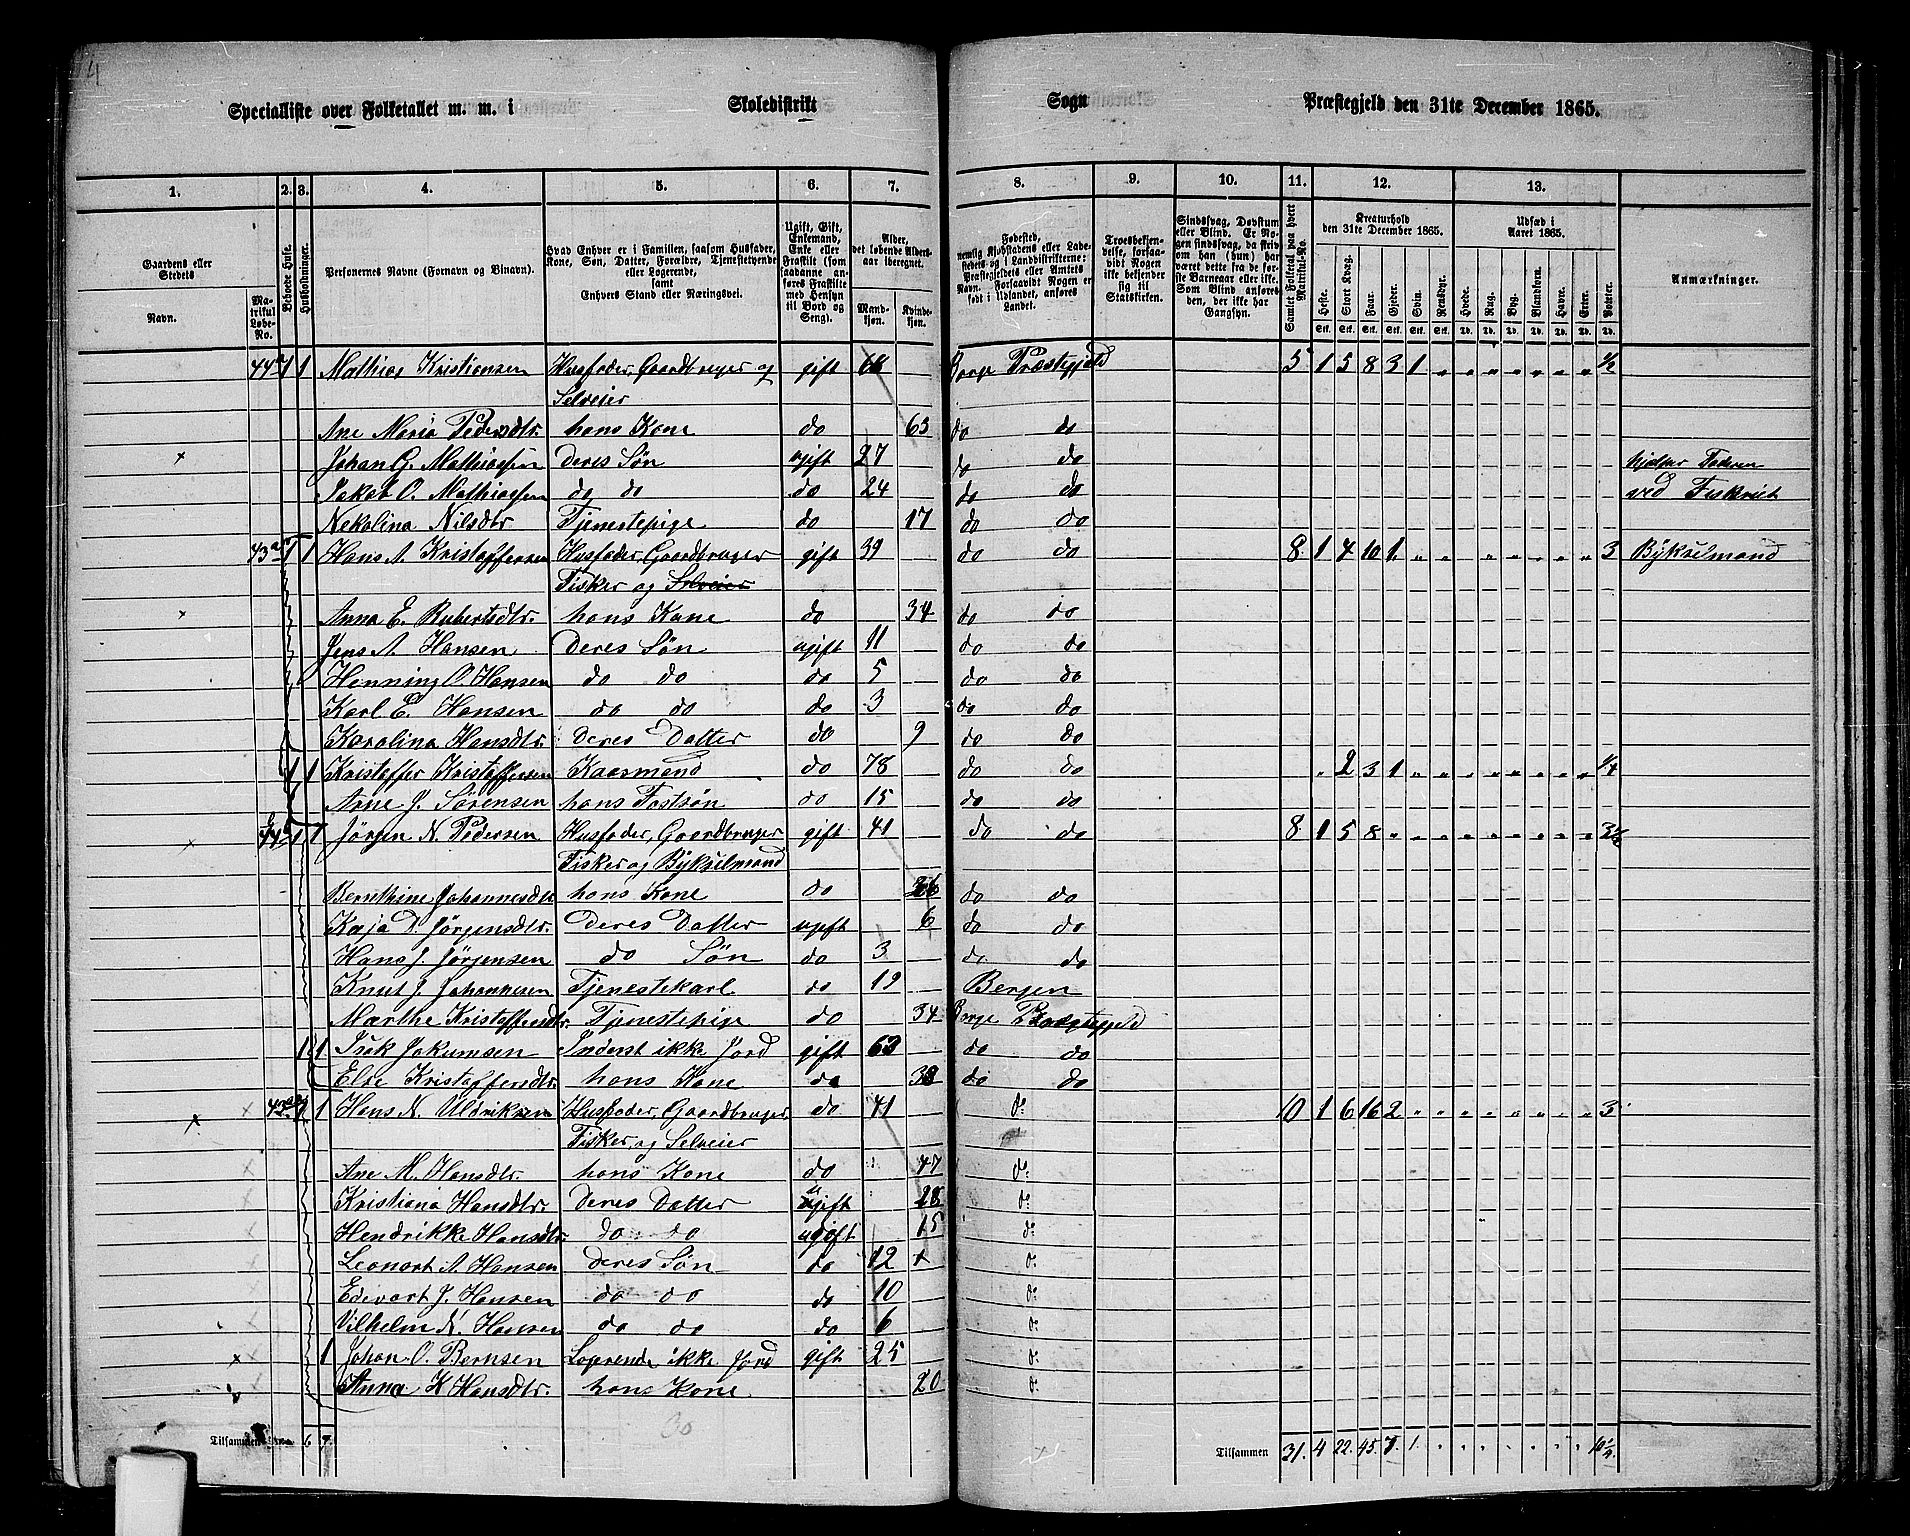 4
Specialliste over Folketallet m. m. i Skoledistrikt Sogn Præstegjeld den 31te December 1865.
1. 2. 3. 4. 5. 6. 7. 8. 9. 10. 11. 12. 13.
Gaardens eller Stedets Navn. Matrikul Løbe-No. Beboede Huse. Husholdninger. Personernes Navne (Fornavn og Tilnavn). Hvad Enhver er i Familien, saasom Husfader, Kone, Søn, Datter, Forældre, Tjenestetyende eller Logerende, samt Enhvers Stand eller Næringsvei. Ugift, Gift, Enkemand, Enke eller Fraskilt (som saadanne anføres Fraskilte med Hensyn til Bord og Seng). Alder, det løbende Aldersaar iberegnet. Mandkjøn. Kvindekjøn. Fødested, nemlig Kjøbstadens eller Ladestedets og i Landdistrikterne: Præstegjeldets eller Amtets Navn. Forsaavidt Nogen er født i Udlandet, anføres Landet. Troesbekjendelse, forsaavidt Nogen ikke bekjender sig til Statskirken. Sindssvag, Døvstum eller Blind. Er Nogen sindssvag, da skrives om han (hun) har været dette fra de første Barneaar eller ikke. Som Blind anføres den, der ikke har Gangsyn. Samlet Folketal paa hvert Matrikul-No. Kreaturhold den 31te December 1865. Heste. Stort Kvæg. Faar. Gjeder. Svin. Rensdyr. Udsæd i Aaret 1865. Hvede. Rug. Byg. Blandkorn. Havre. Erter. Poteter. Anmærkninger.
44 1 1 Mathias Kristiansen Husfader, Gaardbruger og gift 68 Borge Præstegjeld 5 1 5 8 3 1 " " " " " " " ½
Selveier
Ane Maria Pedersdtr. hans Kone do 63 do do
Johan G. Mathiassen deres Søn ugift 27 do do hjelper Faderen
Jakob O. Mathiassen do do do 24 do do ved Fiskeriet
Nekolina Nilsdtr Tjenestepige do 17 do do
43 1 1 Hans A. Kristoffersen Husfader, Gaardbruger gift 39 do do 8 1 4 10 1 " " " " " " " " 3 Bykselmand
Fisker og Selveier
Anna E. Rubertsdtr. hans Kone do 34 do do
Jens A. Hansen Deres Søn ugift 11 do do
Henning O Hansen do do do 5 do do
Karl E. Hansen do do do 3 do do
Karolina Hansdtr. Deres Datter do 9 do do
1 1 Kristoffer Kristoffersen Kaarmand do 78 do do " 2 3 1 " " " " " " " " ¼
Arne J. Sørensen hans Fostsøn do 15 do do
44 1 1 Jørgen N. Pedersen Husfader, Gaardbruger gift 41 do do 8 1 5 8 " " " " " " " " "
Fisker og Bykselmand
Bernthine Johannesdtr hans Kone do do do
Kaja D. Jørgensdtr. Deres Datter ugift 6 do do
Hans J. Jørgensen do Søn do 3 do do
Knut J. Johannesen Tjenestekarl do 19 Bergen
Marthe Kristoffersdtr. Tjenestepige do 34 Borge Præstegjeld
1 1 Isak Jakumsen Inderst ikke Jord gift 63 do do
Else Kristoffersdtr. hans Kone do do do
1 1 Hans N. Uldriksen Husfader, Gaardbruger do 41 do 10 1 6 16 2 " " " " " " " " 3
Fisker, og Selveier do
Ane M. Hansdtr. hans Kone do 47 do
Kristiana Hansdtr. Deres Datter ugift 28 do
Hendrikke Hansdtr. do do ugift 15 do
Leonart A Hansen deres Søn do 12 do
Edevart J. Hansen do do do 10 do
Vilhelm N. Hansen do do do 6 do
1 Johan O. Bernsen Logerende ikke Jord gift 25 do
Anna K Hansdtr. hans Kone 20 do
30
Tilsammen 6 7. Tilsammen 31. 4 22. 45. 7. 1. " " " " " " "